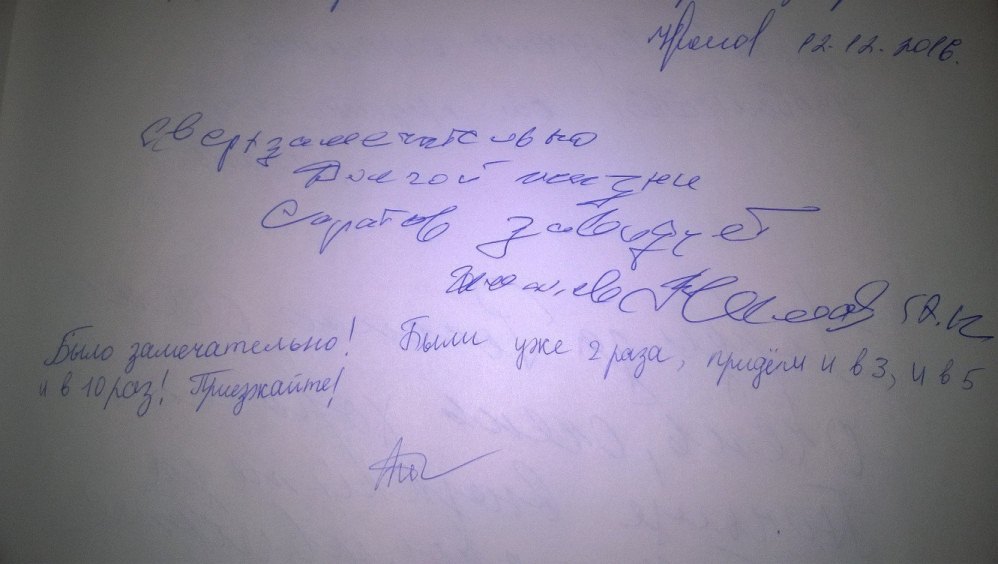 12.12.2016.
Сверхзамечательно
Долгой жизни
Саратов завидует
Было замечательно! Были уже 2 раза, придём и в 3, и в 5
и в 10 раз! Приезжайте!